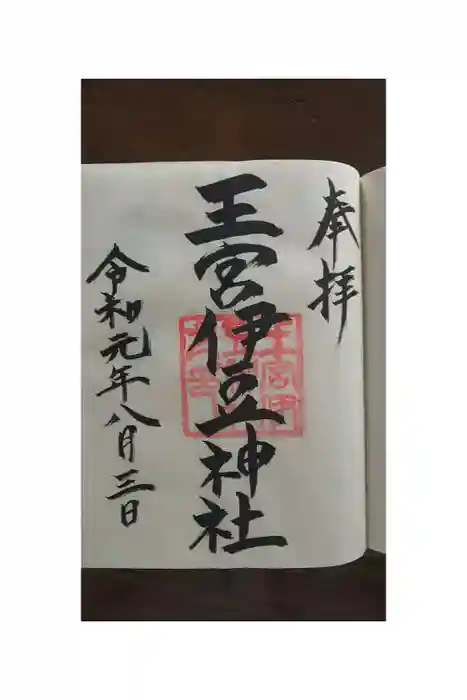 奉拝
王宮伊豆神社
令和元年八月三日